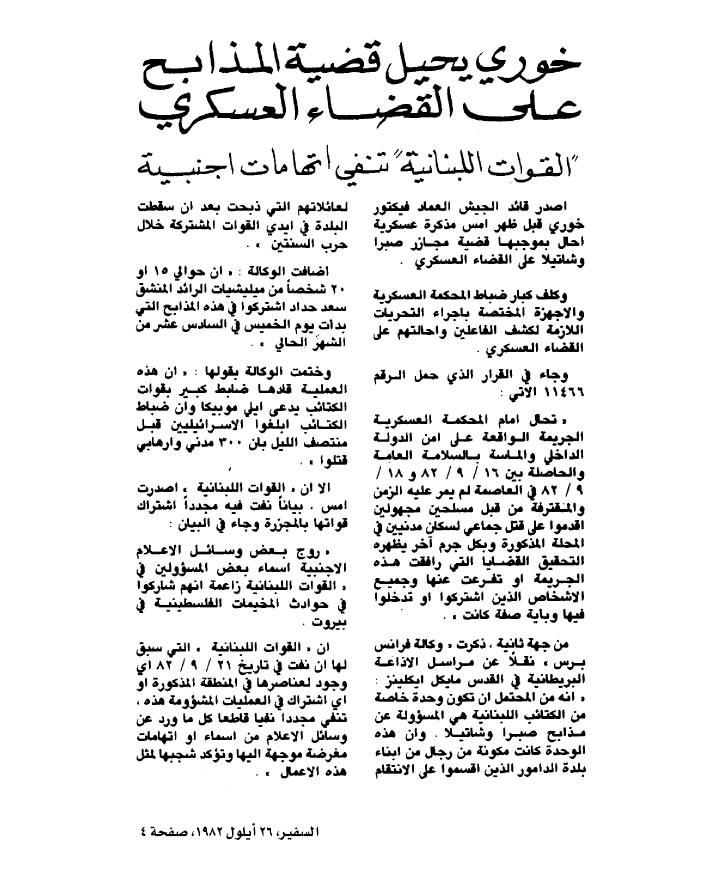 خوري يحيل قضية المذابح
على القضاء العسكري
"القوات اللبنانية" تنفي اتهامات اجنبية
اصدر قائد الجيش العماد فيكتور
خوري قبل ظهر امس مذكرة عسكرية
احال بموجبها قضية مجازر صبرا
وشاتيلا على القضاء العسكري .
وكلف كبار ضباط المحكمة العسكرية
والاجهزة المختصة باجراء التحريات
اللازمة لكشف الفاعلين واحالتهم على
القضاء العسكري .
وجاء في القرار الذي حمل الرقم
١١٤٦٦ الآتي :
« تحال امام المحكمة العسكرية
الجريمة الواقعة على امن الدولة
الداخلي والماسة بالسلامة العامة
والحاصلة بين ١٦ / ٩ / ٨٢ و ١٨ /
٩ / ٨٢ في العاصمة لم يمر عليه الزمن
والمقترفة من قبل مسلحين مجهولين
اقدموا على قتل جماعي لسكان مدنيين في
المحلة المذكورة وبكل جرم آخر يظهره
التحقيق القضايا التي رافقت هذه
الجريمة او تفرعت عنها وجميع
الاشخاص الذين اشتركوا او تدخلوا
فيها وباية صفة كانت » .
من جهة ثانية ، ذكرت « وكالة فرانس
برس » نقلاً عن مراسل الاذاعة
البريطانية في القدس مايكل ايكلينز :
« انه من المحتمل ان تكون وحدة خاصة
من الكتائب اللبنانية هي المسؤولة عن
مذابح صبرا وشاتيلا . وان هذه
الوحدة كانت مكونة من رجال من ابناء
بلدة الدامور الذين اقسموا على الانتقام
لعائلاتهم التي ذبحت بعد ان سقطت
البلدة في ايدي القوات المشتركة خلال
حرب السنتين » .
اضافت الوكالة : « ان حوالي ١٥ او
٢٠ شخصاً من ميليشيات الرائد المنشق
سعد حداد اشتركوا في هذه المذابح التي
بدات يوم الخميس في السادس عشر من
الشهر الحالي » .
وختمت الوكالة بقولها : « ان هذه
العملية قادها ضابط كبير بقوات
الكتائب يدعى ايلي موبيكا وان ضباط
الكتائب ابلغوا الاسرائيليين قبل
منتصف الليل بان ٣٠٠ مدني وارهابي
قتلوا » .
الا ان « القوات اللبنانية » اصدرت
امس ، بياناً نفت فيه مجدداً اشتراك
قواتها بالمجزرة وجاء في البيان :
« روج بعض وسائل الاعلام
الاجنبية اسماء بعض المسؤولين في
« القوات اللبنانية زاعمة انهم شاركوا
في حوادث المخيمات الفلسطينية في
بيروت .
ان « القوات اللبنانية » التي سبق
لها ان نفت في تاريخ ٢١ / ٩ / ٨٢ اي
وجود لعناصرها في المنطقة المذكورة او
اي اشتراك في العمليات المشؤومة هذه ،
تنفي مجددا نفيا قاطعا كل ما ورد عن
وسائل الاعلام من اسماء او اتهامات
مغرضة موجهة اليها وتؤكد شجبها لمثل
هذه الاعمال » .
السفير، ٢٦ أيلول ١٩٨٢، صفحة ٤